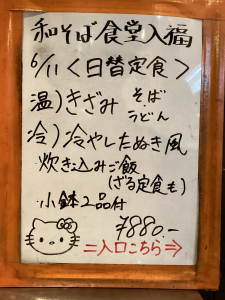 和そば食堂入福
6/11<日替定食>
温)きざみ そば
うどん
冷)冷やしたぬき風
炊き込みご飯
(ざる定食も)
小鉢2品付
¥880.-
=入口こちら⇒